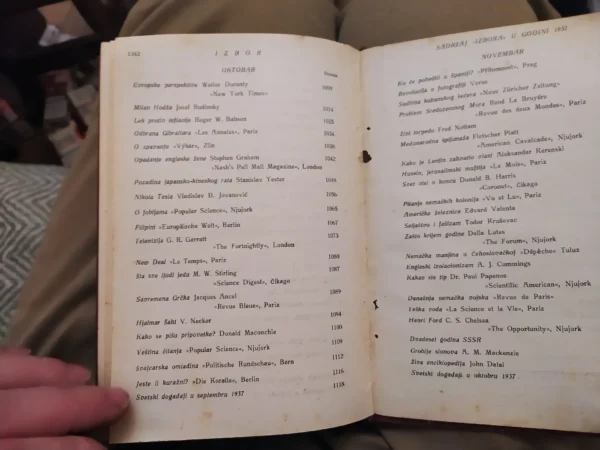 1342 IZBOR
OKTOBAR
Strana
Evropske perspektive Walter Duranty
»New York Times« 1009
Milan Hodža Josef Rudinsky 1014
Lek protiv inflacije Roger W. Babson 1025
Odbrana Gibraltara »Les Annales«, Pariz 1034
O spavanju »Výhor«, Zlin 1036
Opadanje engleske žene Stephen Graham 1042
»Nash's Pall Mall Magazine«, London
Pozadina japansko-kineskog rata Stanislav Yester 1046
Nikola Tesla Vladislav D. Jovanović 1056
O fobijama »Popular Science«, Njujork 1065
Filipini »Europäische Welt«, Berlin 1067
Televizija G. R. Garratt 1073
»The Fortnightly«, London
New Deal »Le Temps«, Pariz
Šta sve ljudi jedu M. W. Stirling 1087
»Science Digest«, Čikago
Savremena Grčka Jacques Ancel 1089
»Revue Bleue«, Pariz
Hjalmar Šaht V. Necker 1094
Kako se pišu pripovetke? Donald Maconchie 1100
Veština čitanja »Popular Science«, Njujork 1109
Švajcarska omladina »Politische Rundschau«, Bern 1112
Jeste li kuražni? »Die Koralle«, Berlin 1116
Svetski događaji u septembru 1937 1118
SADRŽAJ »IZBORA« U GODINI 1937
NOVEMBAR
Ko će pobediti u Španiji? »Přítomnost«, Prag
Revolucija u fotografiji Verus
Sudbina kubanskog šećera »Neue Züricher Zeitung«
Problem Sredozemnog Mora René La Bruyère
»Revue des deux Mondes«, Pariz
Živi torpedo Fred Nottam
Međunarodna špijunaža Fletscher Platt
»American Cavalcade«, Njujork
Kako je Lenjin zahvatio vlast Aleksander Kerenski
Husein, jerusalimski muftija »Le Mois«, Pariz
Svet stoi o koncu Donald B. Harris
»Coronet«, Čikago
Pitanje nemačkih kolonija »Vu et Lu«, Pariz
Američke železnice Edvard Valente
Seljaštvo i fašizam Todor Kruševac
Zašto krijem godine Della Lutes
»The Forum«, Njujork
Nemačka manjina u Čehoslovačkoj »Dépêche« Tuluz
Engleski izolacionizam A. J. Cummings
Kakav ste tip Dr. Paul Popenoe
»Scientific American«, Njujork
Današnja nemačka vojska »Revue de Paris«
Teška voda »La Science et la Vie«, Pariz
Henri Ford C. S. Chelsea
»The Opportunity«, Njujork
Dvadeset godina SSSR
Groblje slonova A. M. Mackenzie
Živa enciklopedija John Datal
Svetski događaji u oktobru 1937